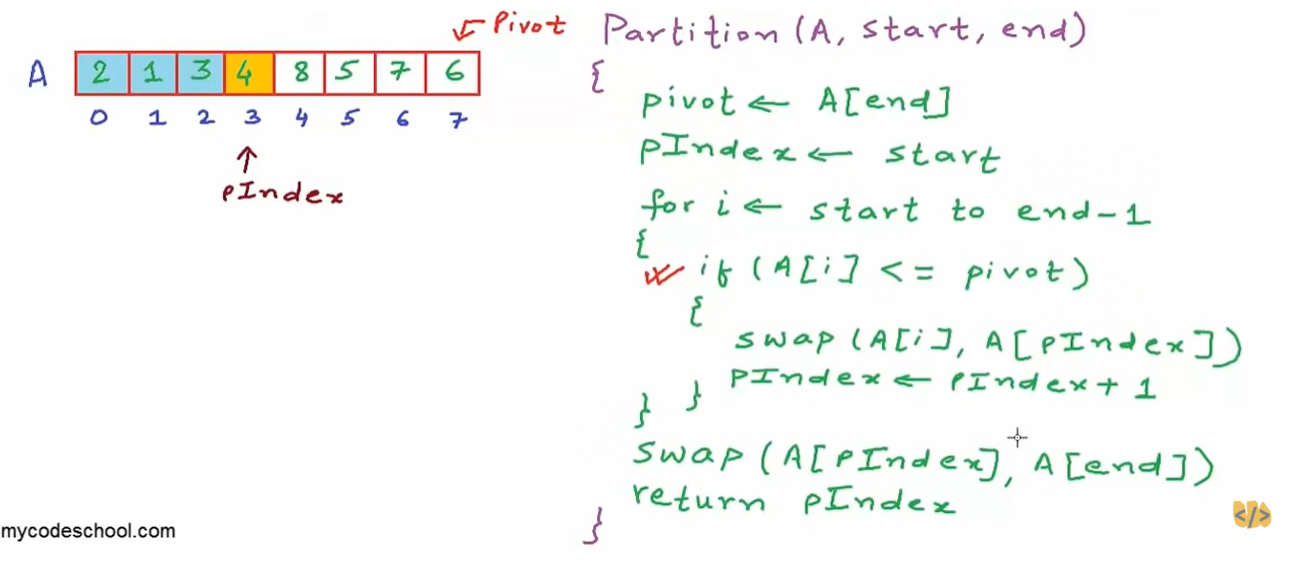 Pivot
A 2 1 3 4 8 5 7 6
0 1 2 3 4 5 6 7
PIndex
Partition (A, start, end)
{
pivot ← A[end]
PIndex ← start
for i ← start to end-1
{
if (A[i] <= pivot)
{
swap (A[i], A[PIndex])
PIndex ← PIndex + 1
} }
swap (A[PIndex], A[end])
return PIndex
}
mycodeschool.com
</>